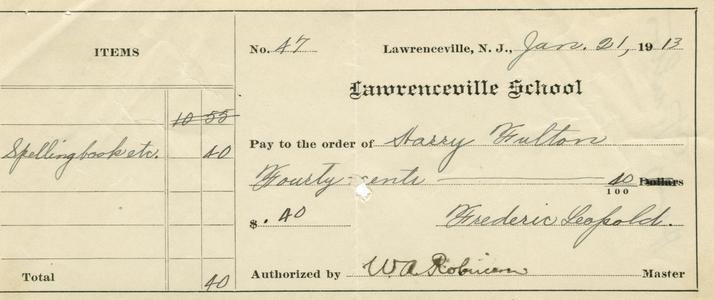 ITEMS
10 55
Spelling book etc. 40
Total 40
No. 47 Lawrenceville, N. J., Jan. 21, 1913
Lawrenceville School
Pay to the order of Harry Fulton
Fourty cents 40/100 Dollars
$ .40 Frederic Leopold.
Authorized by W A Robinson Master